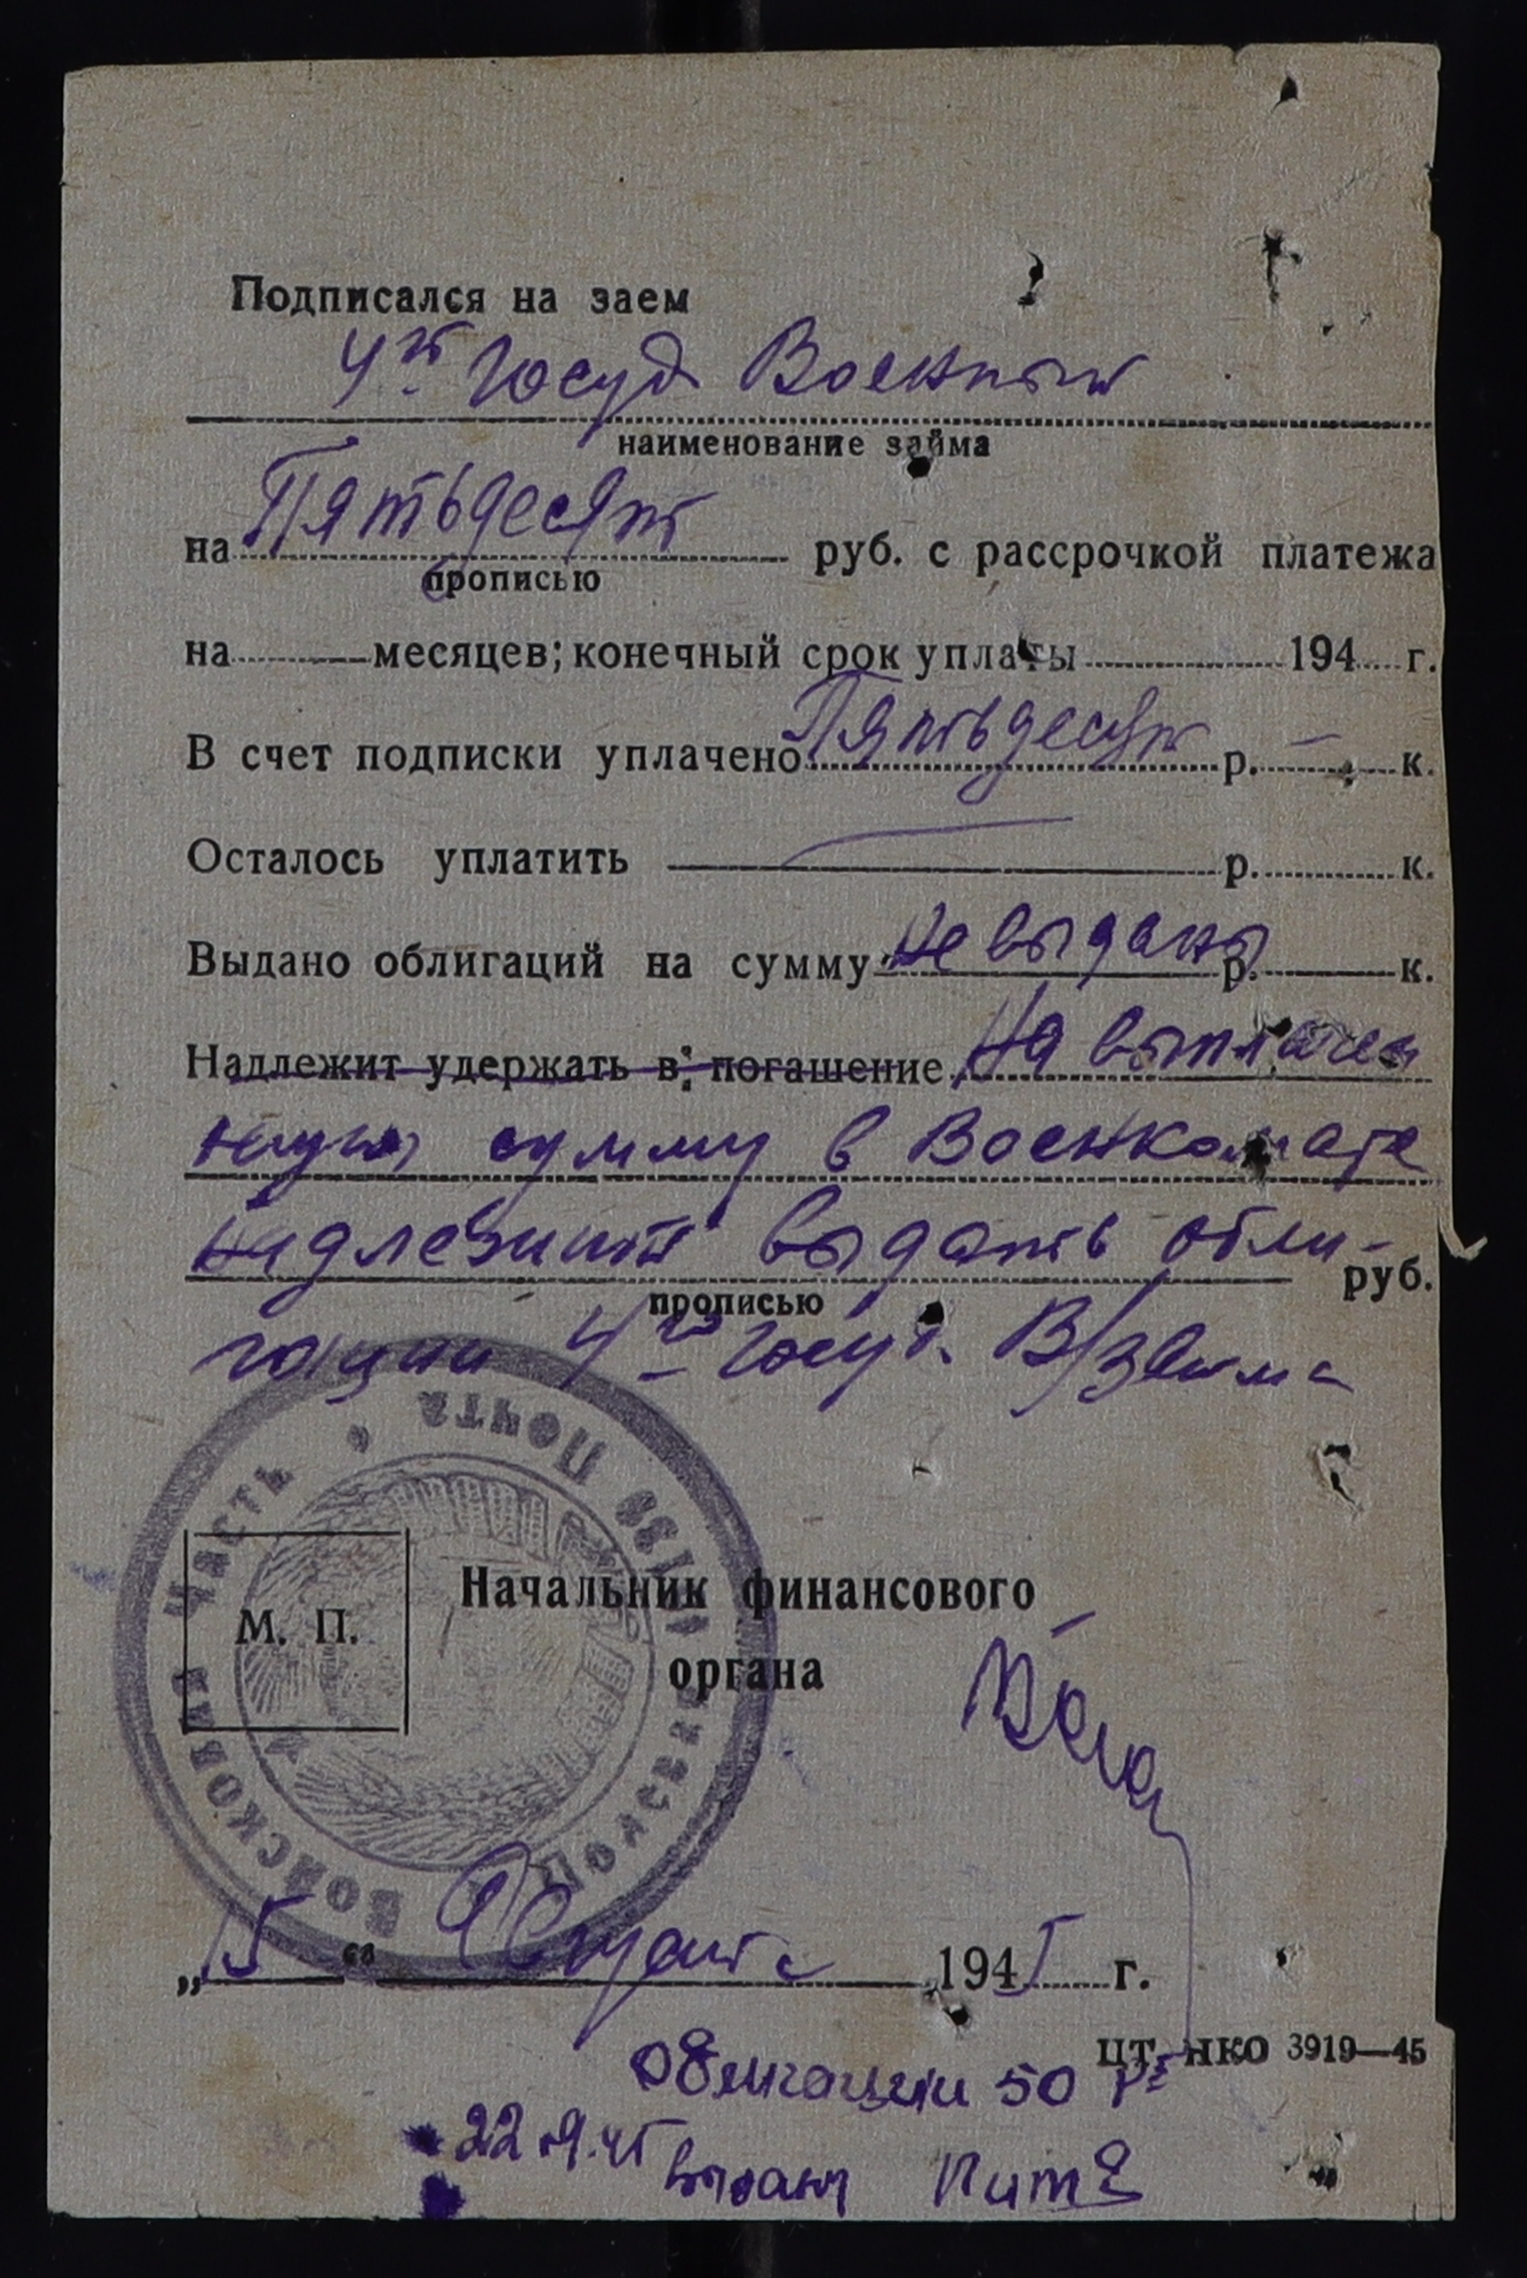 Подписался на заем
4й Госуд Военный
наименование займа
на Пятьдесят руб. с рассрочкой платежа
прописью
на месяцев; конечный срок уплаты 194 г.
В счет подписки уплачено Пятьдесят р. — к.
Осталось уплатить — р. к.
Выдано облигаций на сумму Не выданы р. к.
Надлежит удержать в: погашение На выплачен
ную сумму в Военкомате
надлежит выдать обли-
руб.
прописью
гации 4го Госуд. В/займа
ПОЧТА
ВОЙСКОВАЯ ЧАСТЬ
ПОЛЕВАЯ
М. П.
Начальник финансового
органа
„15“ Августа 1945 г.
ЦТ. НКО 3919—45
Облигации 50 р
22.9.45 выданы